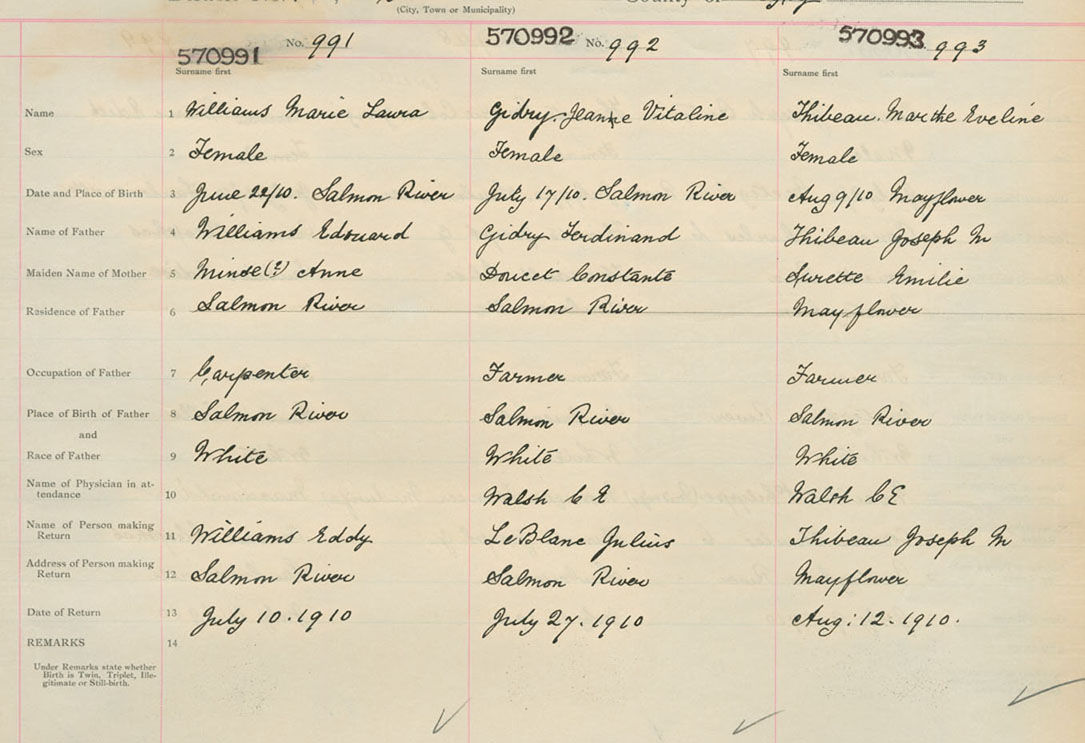 (City, Town or Municipality)
570991 No. 991 570992 No. 992 570993 993
Surname first Surname first Surname first
Name 1 Williams Marie Laura Gidry. Jeanne Vitaline Thibeau. Marthe Eveline
Sex 2 Female Female Female
Date and Place of Birth 3 June 22/10. Salmon River July 17/10. Salmon River Aug 9/10 Mayflower
Name of Father 4 Williams Edouard Gidry Ferdinand Thibeau Joseph M
Maiden Name of Mother 5 Minse(?) Anne Doucet Constante Surette Emilie
Residence of Father 6 Salmon River Salmon River Mayflower
Occupation of Father 7 Carpenter Farmer Farmer
Place of Birth of Father 8 Salmon River Salmon River Salmon River
and
Race of Father 9 White White White
Name of Physician in at-
tendance 10 Walsh C E Walsh C E
Name of Person making
Return 11 Williams Eddy LeBlanc Julius Thibeau Joseph M
Address of Person making
Return 12 Salmon River Salmon River Mayflower
Date of Return 13 July 10. 1910 July 27. 1910 Aug: 12. 1910.
REMARKS 14
Under Remarks state whether
Birth is Twin, Triplet, Ille-
gitimate or Still-birth.